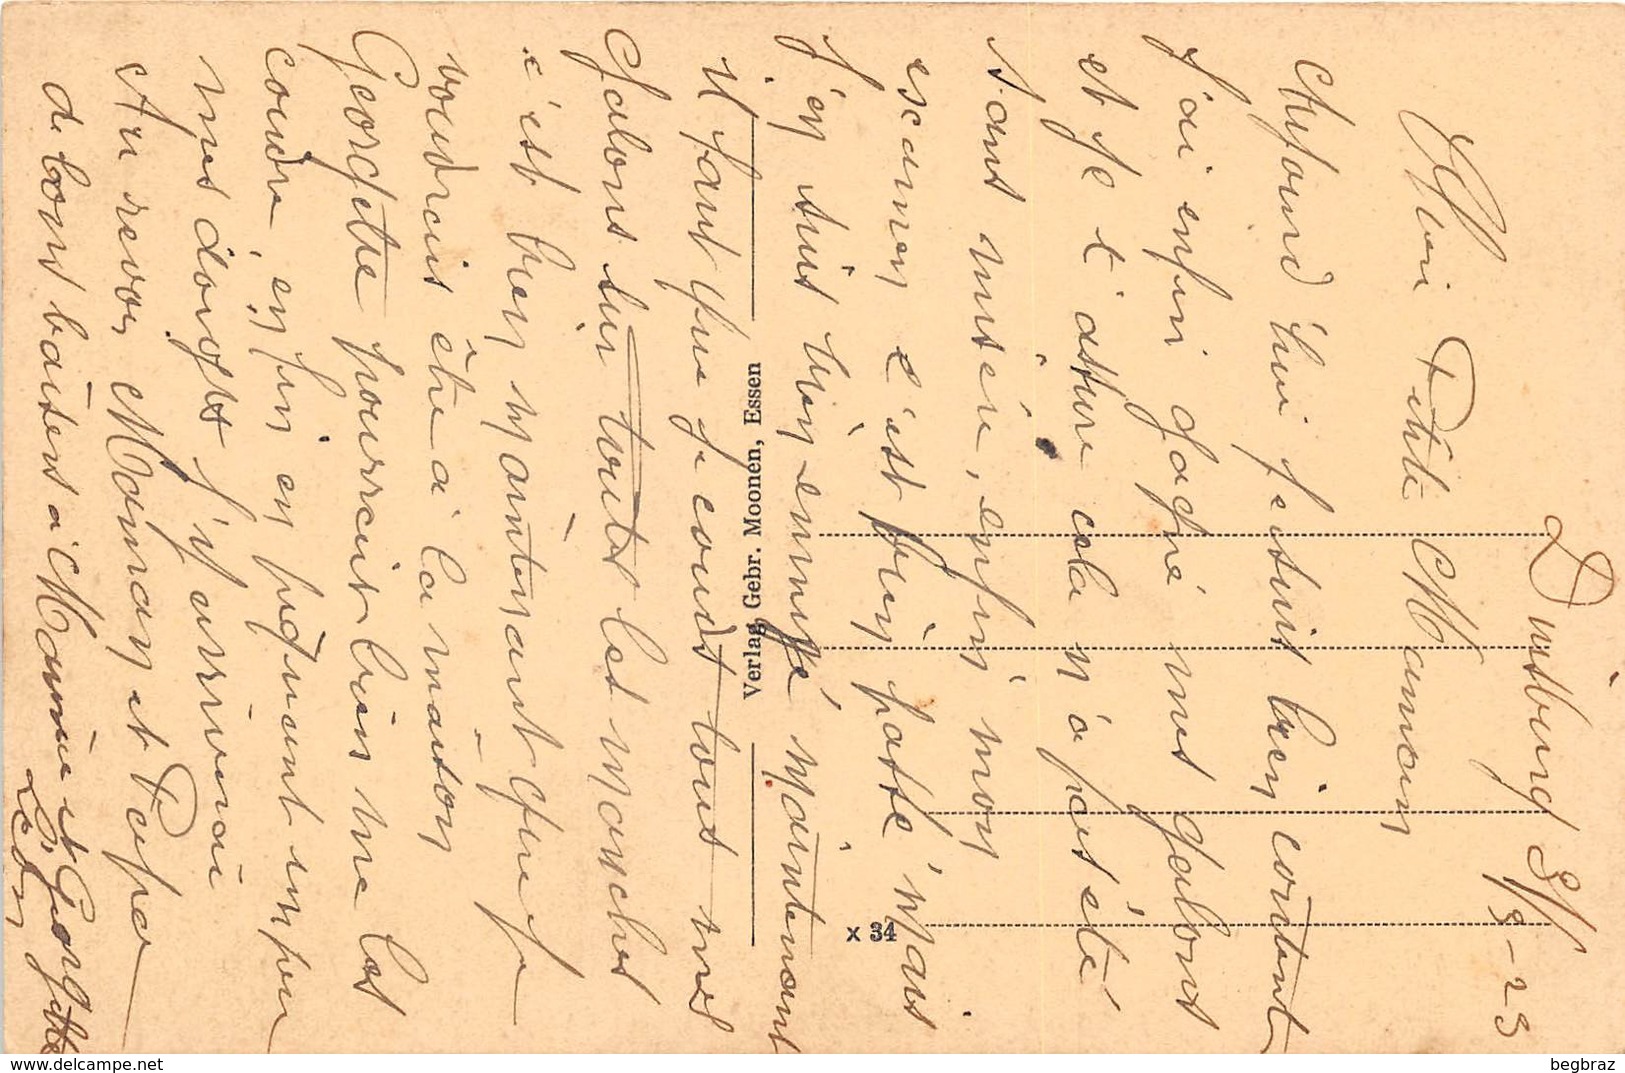 Duisburg 31/5-23
Chère Petite Maman
Aujourd'hui je suis bien content
J'ai enfin gagné mes galons
et je t'assure cela n'a pas été
sans misère, enfin mon
examen c'est bien passé mais
j'en suis bien ennuyé maintenant
il faut que je couds tous mes
Galons sur toutes les manches
c'est bien maintenant que je
voudrais être à la maison
Georgette pourrait bien me les
coudre, enfin en piquant un peu
mes doigts j'y arriverai
Au revoir Maman et Papa
de bons baisers à Mamie et Georgette
Léon
Verlag Gebr. Moonen, Essen
x 34
delcampe.net
begbraz